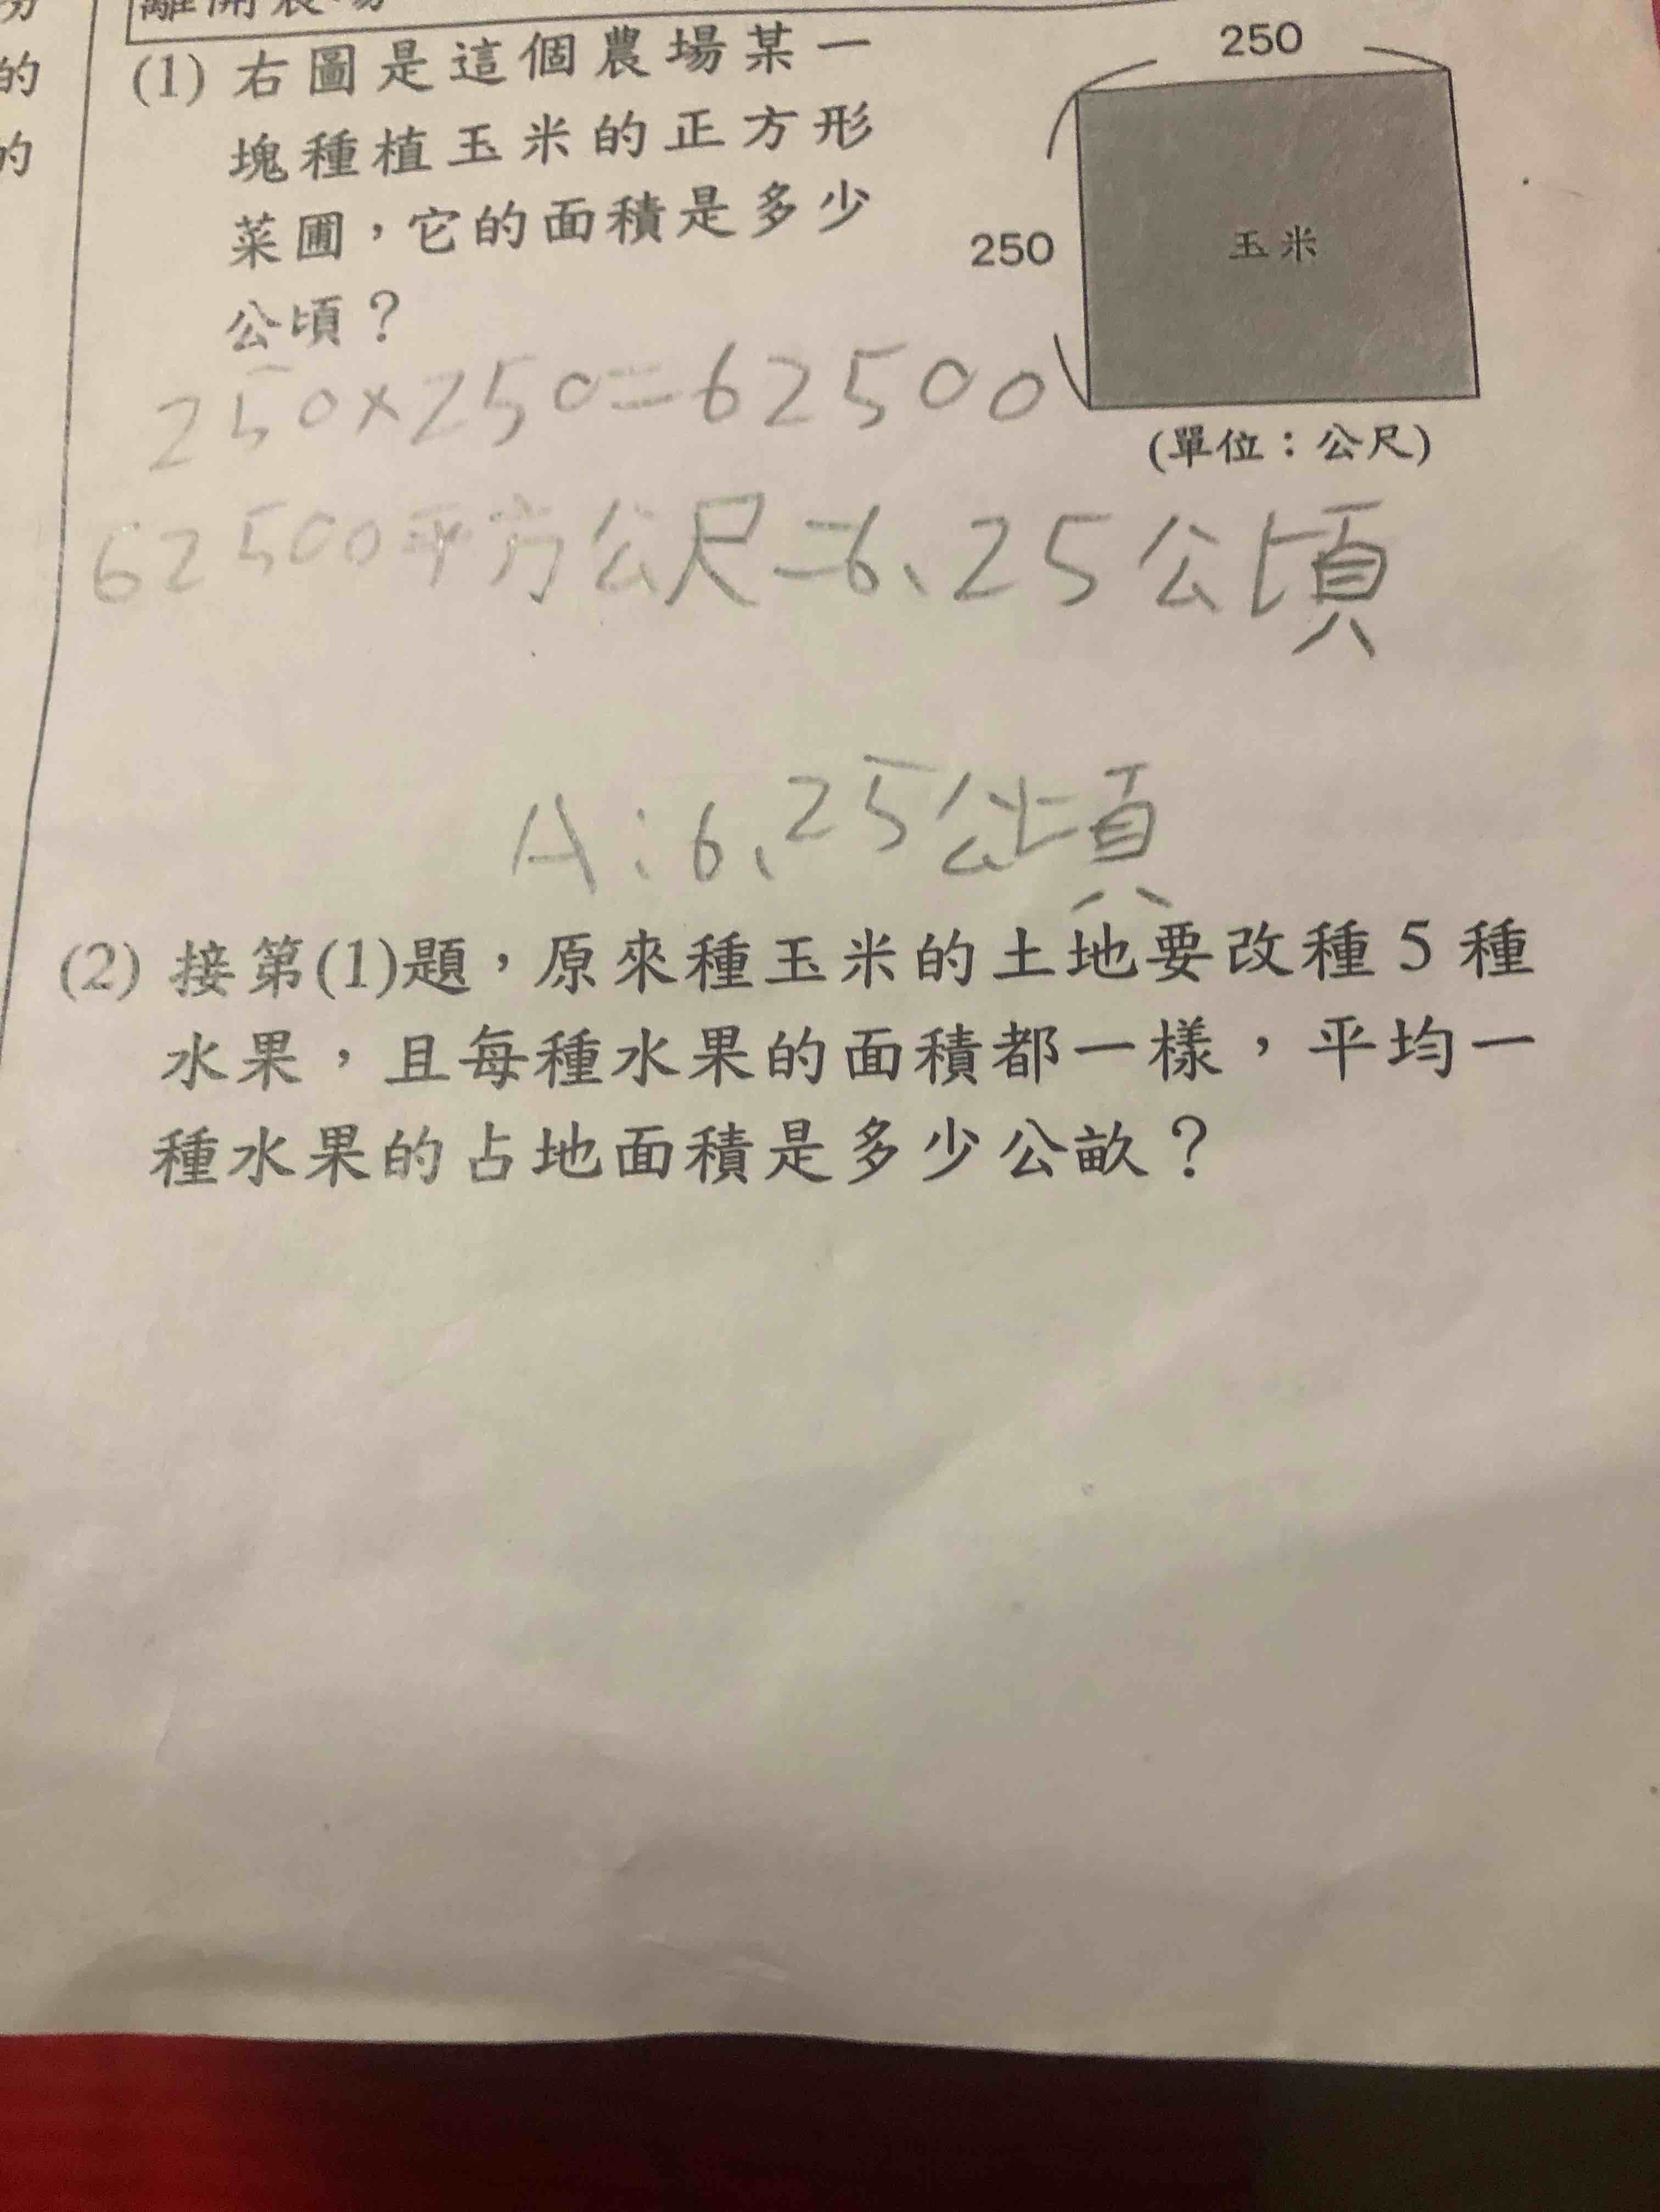 的
的
離開農場
(1) 右圖是這個農場某一
塊種植玉米的正方形
菜圃，它的面積是多少
公頃？
250
250
玉米
(單位：公尺)
250×250=62500
62500平方公尺=6.25公頃
A：6.25公頃
(2) 接第(1)題，原來種玉米的土地要改種5種
水果，且每種水果的面積都一樣，平均一
種水果的占地面積是多少公畝？